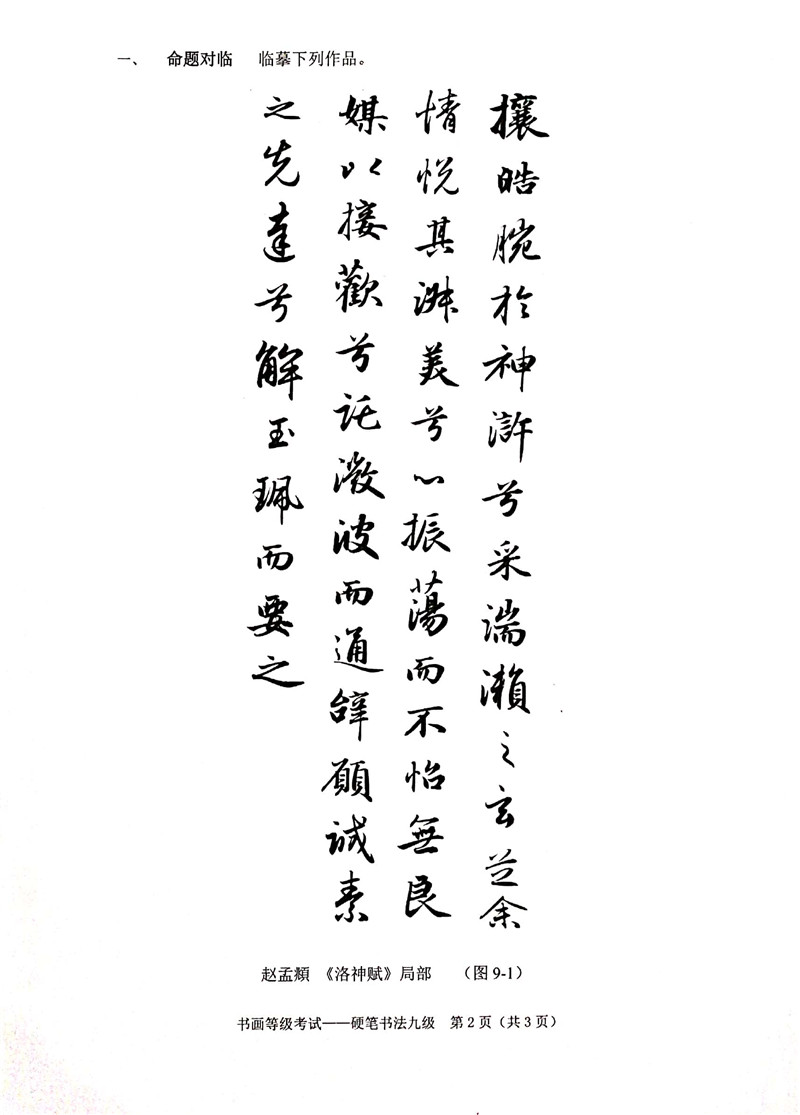 一、 命题对临 临摹下列作品。
攘皓腕於神滸兮采湍瀨之玄芝余
情悦其淑美兮心振蕩而不怡無良
媒以接歡兮託微波而通辭願誠素
之先達兮解玉珮而要之
赵孟頫 《洛神赋》局部 （图9-1）
书画等级考试——硬笔书法九级 第2页（共3页）